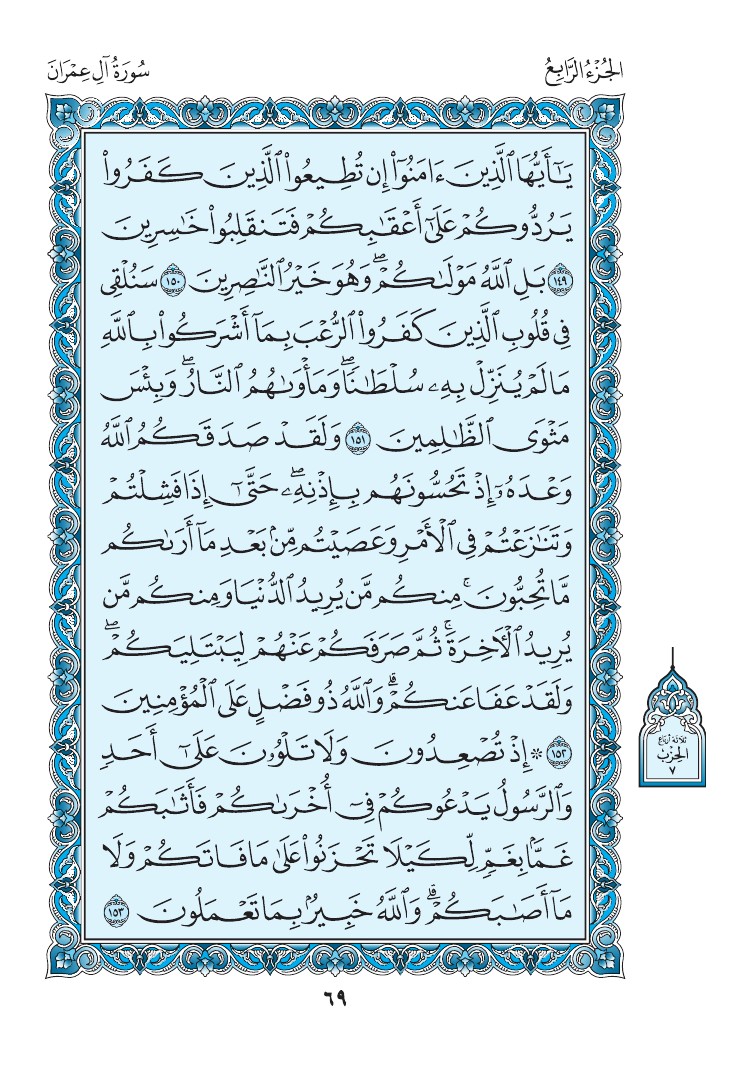 الجُزْءُ الرَّابِعُ
سُورَةُ آلِ عِمْرَانَ
يَٰٓأَيُّهَا ٱلَّذِينَ ءَامَنُوٓاْ إِن تُطِيعُواْ ٱلَّذِينَ كَفَرُواْ
يَرُدُّوكُمْ عَلَىٰٓ أَعْقَٰبِكُمْ فَتَنقَلِبُواْ خَٰسِرِينَ
١٤٩ بَلِ ٱللَّهُ مَوْلَىٰكُمْۖ وَهُوَ خَيْرُ ٱلنَّٰصِرِينَ ١٥٠ سَنُلْقِى
فِى قُلُوبِ ٱلَّذِينَ كَفَرُواْ ٱلرُّعْبَ بِمَآ أَشْرَكُواْ بِٱللَّهِ
مَا لَمْ يُنَزِّلْ بِهِۦ سُلْطَٰنٗاۖ وَمَأْوَىٰهُمُ ٱلنَّارُۖ وَبِئْسَ
مَثْوَى ٱلظَّٰلِمِينَ ١٥١ وَلَقَدْ صَدَقَكُمُ ٱللَّهُ
وَعْدَهُۥٓ إِذْ تَحُسُّونَهُم بِإِذْنِهِۦۖ حَتَّىٰٓ إِذَا فَشِلْتُمْ
وَتَنَٰزَعْتُمْ فِى ٱلْأَمْرِ وَعَصَيْتُم مِّنۢ بَعْدِ مَآ أَرَىٰكُم
مَّا تُحِبُّونَۚ مِنكُم مَّن يُرِيدُ ٱلدُّنْيَا وَمِنكُم مَّن
يُرِيدُ ٱلْأَخِرَةَۚ ثُمَّ صَرَفَكُمْ عَنْهُمْ لِيَبْتَلِيَكُمْۖ
وَلَقَدْ عَفَا عَنكُمْۗ وَٱللَّهُ ذُو فَضْلٍ عَلَى ٱلْمُؤْمِنِينَ
١٥٢ ۞ إِذْ تُصْعِدُونَ وَلَا تَلْوُۥنَ عَلَىٰٓ أَحَدٖ
وَٱلرَّسُولُ يَدْعُوكُمْ فِىٓ أُخْرَىٰكُمْ فَأَثَٰبَكُمْ
غَمَّۢا بِغَمّٖ لِّكَيْلَا تَحْزَنُواْ عَلَىٰ مَا فَاتَكُمْ وَلَا
مَآ أَصَٰبَكُمْۗ وَٱللَّهُ خَبِيرُۢ بِمَا تَعْمَلُونَ ١٥٣
ثلاثة أرباع
الحزب
٧
٦٩